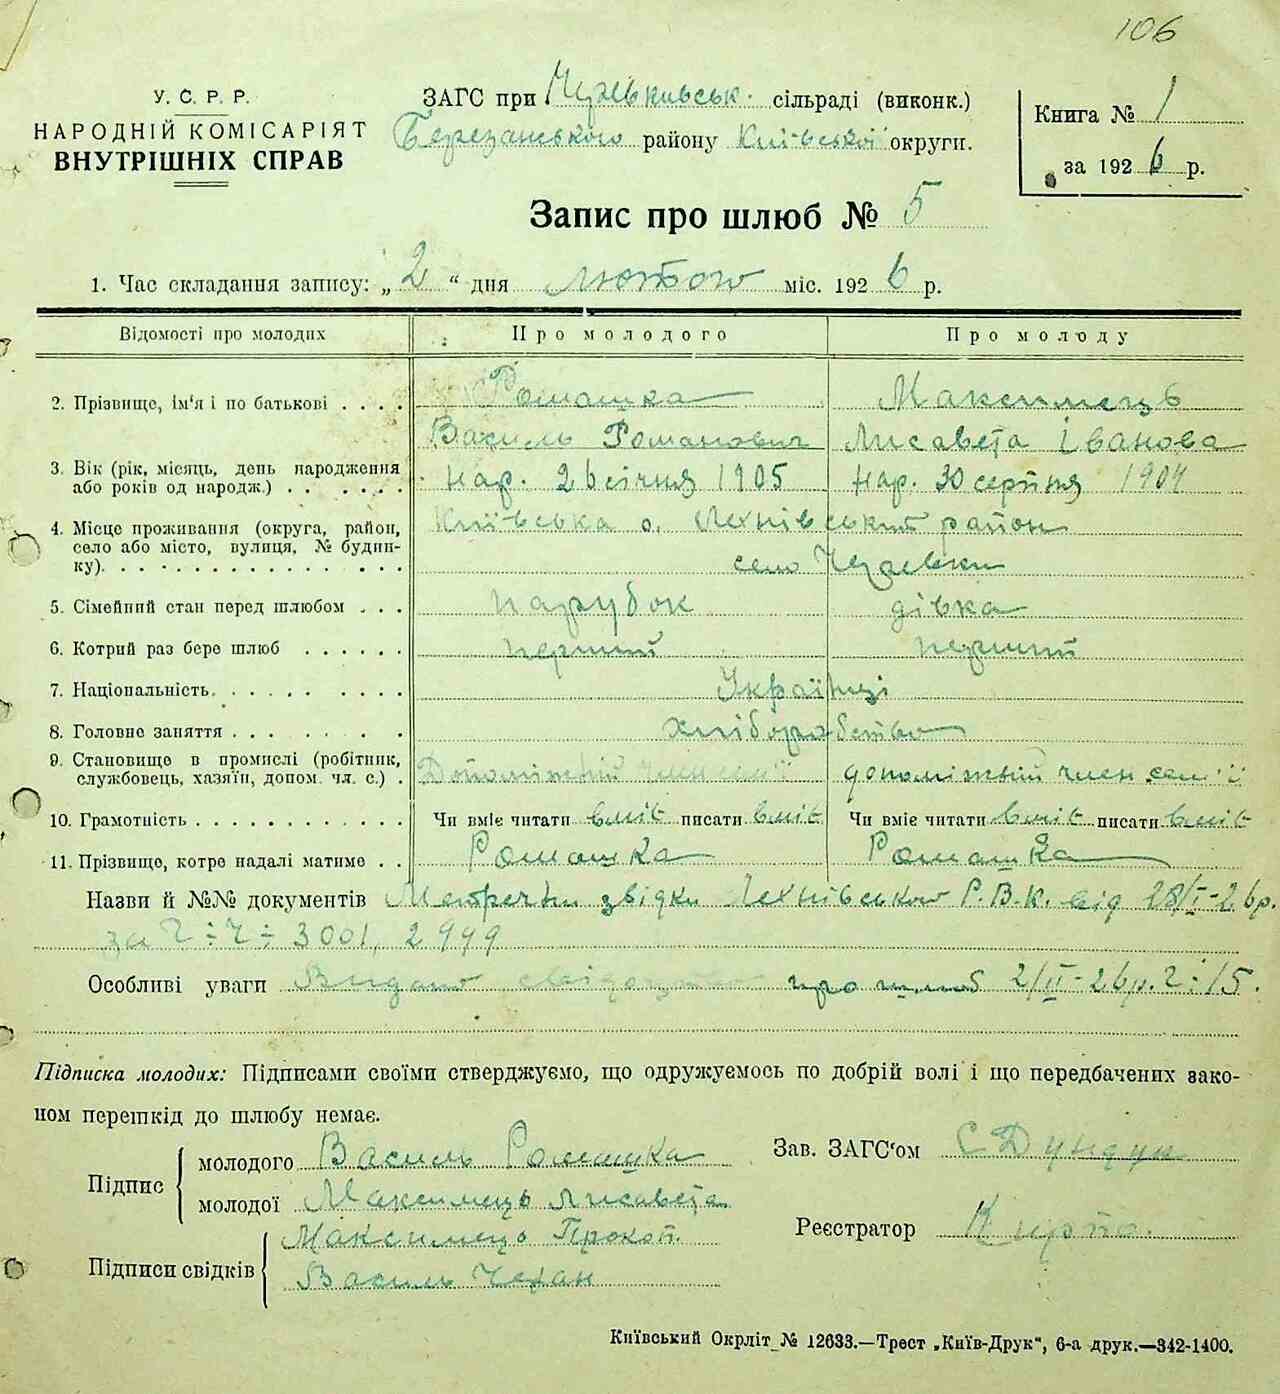 106
У. С. Р. Р.
НАРОДНІЙ КОМІСАРІЯТ
ВНУТРІШНІХ СПРАВ
ЗАГС при сільраді (виконк.)
Березанського району Київської округи.
Книга № 1
за 1926 р.
Запис про шлюб № 5
1. Час складання запису: „2“ дня лютого міс. 1926 р.
Відомості про молодих Про молодого Про молоду
2. Прізвище, ім'я і по батькові . . . . Ромашка Максимець
Василь Романович Лисавета Іванова
3. Вік (рік, місяць, день народження або років од народж.) . . . . . . нар. 26 січня 1905 нар. 30 серпня 1904
4. Місце проживання (округа, район, село або місто, вулиця, № будинку). Київська о. Яхнівський район
село
5. Сімейний стан перед шлюбом . . . парубок дівка
6. Котрий раз бере шлюб . . . . . . перший перший
7. Національність. . . . . . . . . . Українці
8. Головне заняття . . . . . . . . . хліборобство
9. Становище в промислі (робітник, службовець, хазяїн, допом. чл. с.) . Допоміжний член сем'ї допоміжний член сем'ї
10. Грамотність . . . . . . . . . . . . Чи вміє читати вміє писати вміє Чи вміє читати вміє писати вміє
11. Прізвище, котре надалі матиме . . Ромашка Ромашка
Назви й №№ документів Метречни звідки Яхнівського Р.В.К. від 28/I-26р.
за Ч÷Ч÷ 3001, 2999
Особливі уваги Видано свідоцтво про шлюб 2/II-26р. Ч÷15.
Підписка молодих: Підписами своїми стверджуємо, що одружуємось по добрій волі і що передбачених зако-
ном перешкід до шлюбу немає.
Підпис молодого Василь Ромашка
молодої Максимець Лисавета
Підписи свідків Максимець Прокоп.
Василь Чехан
Зав. ЗАГС'ом С Дундук
Реєстратор Кирпо.
Київський Окрліт № 12633.—Трест „Київ-Друк“, 6-а друк.—342-1400.